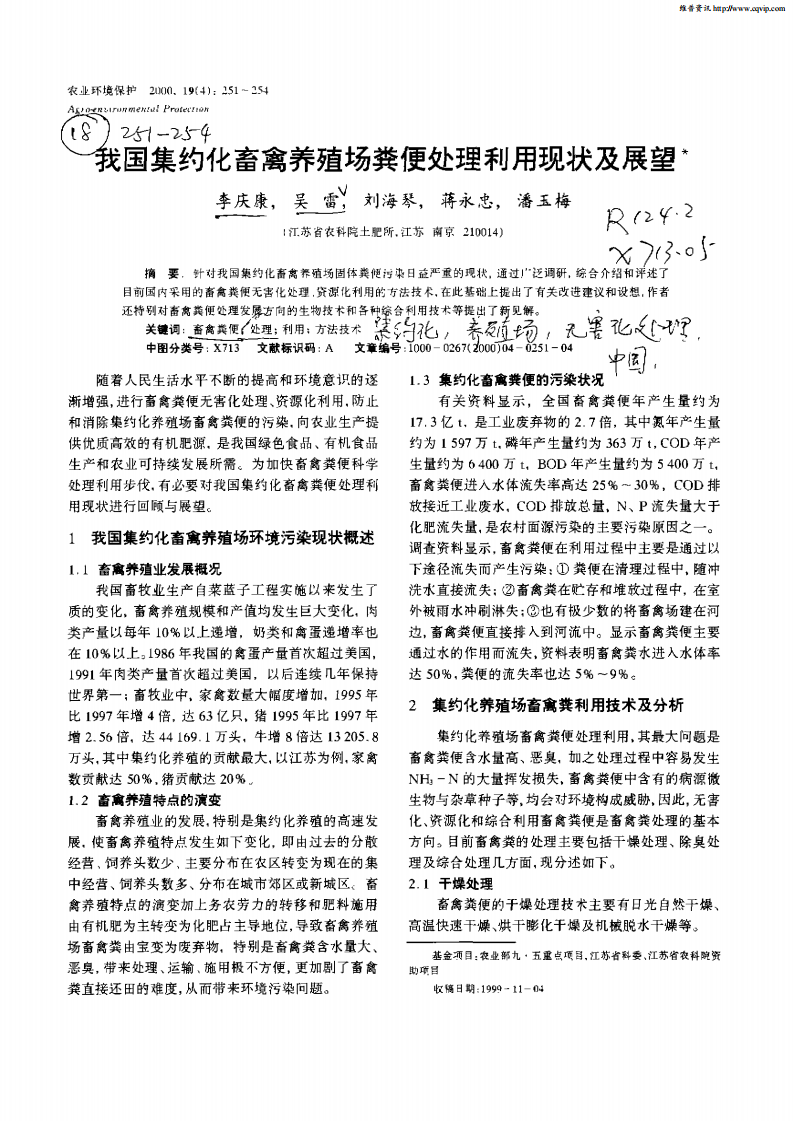 维普资讯 http://www.cqvip.com
农业环境保护 2000, 19(4): 251~254
Agro-environmental Protection
18 251-254
我国集约化畜禽养殖场粪便处理利用现状及展望*
李庆康, 吴 雷, 刘海琴, 蒋永忠, 潘玉梅
R124.2
(江苏省农科院土肥所,江苏 南京 210014)
X713.05
摘 要: 针对我国集约化畜禽养殖场固体粪便污染日益严重的现状, 通过广泛调研, 综合介绍和评述了
目前国内采用的畜禽粪便无害化处理、资源化利用的方法技术, 在此基础上提出了有关改进建议和设想, 作者
还特别对畜禽粪便处理发展方向的生物技术和各种综合利用技术等提出了新见解。
关键词: 畜禽粪便; 处理; 利用; 方法技术 集约化, 养殖场, 无害化处理,
中图分类号: X713 文献标识码: A 文章编号:1000-0267(2000)04-0251-04
中国,
随着人民生活水平不断的提高和环境意识的逐
渐增强, 进行畜禽粪便无害化处理、资源化利用, 防止
和消除集约化养殖场畜禽粪便的污染, 向农业生产提
供优质高效的有机肥源, 是我国绿色食品、有机食品
生产和农业可持续发展所需。为加快畜禽粪便科学
处理利用步伐, 有必要对我国集约化畜禽粪便处理利
用现状进行回顾与展望。
1 我国集约化畜禽养殖场环境污染现状概述
1.1 畜禽养殖业发展概况
我国畜牧业生产自菜蓝子工程实施以来发生了
质的变化, 畜禽养殖规模和产值均发生巨大变化, 肉
类产量以每年 10%以上递增, 奶类和禽蛋递增率也
在 10%以上。1986 年我国的禽蛋产量首次超过美国,
1991 年肉类产量首次超过美国, 以后连续几年保持
世界第一; 畜牧业中, 家禽数量大幅度增加, 1995 年
比 1997 年增 4 倍, 达 63 亿只, 猪 1995 年比 1997 年
增 2.56 倍, 达 44 169.1 万头, 牛增 8 倍达 13 205.8
万头, 其中集约化养殖的贡献最大, 以江苏为例, 家禽
数贡献达 50%, 猪贡献达 20%。
1.2 畜禽养殖特点的演变
畜禽养殖业的发展, 特别是集约化养殖的高速发
展, 使畜禽养殖特点发生如下变化, 即由过去的分散
经营、饲养头数少、主要分布在农区转变为现在的集
中经营、饲养头数多、分布在城市郊区或新城区。畜
禽养殖特点的演变加上务农劳力的转移和肥料施用
由有机肥为主转变为化肥占主导地位, 导致畜禽养殖
场畜禽粪由宝变为废弃物, 特别是畜禽粪含水量大、
恶臭, 带来处理、运输、施用极不方便, 更加剧了畜禽
粪直接还田的难度, 从而带来环境污染问题。
1.3 集约化畜禽粪便的污染状况
有关资料显示, 全国畜禽粪便年产生量约为
17.3 亿 t, 是工业废弃物的 2.7 倍, 其中氮年产生量
约为 1 597 万 t, 磷年产生量约为 363 万 t, COD 年产
生量约为 6 400 万 t, BOD 年产生量约为 5 400 万 t,
畜禽粪便进入水体流失率高达 25%~30%, COD 排
放接近工业废水, COD 排放总量, N、P 流失量大于
化肥流失量, 是农村面源污染的主要污染原因之一。
调查资料显示, 畜禽粪便在利用过程中主要是通过以
下途径流失而产生污染: ① 粪便在清理过程中, 随冲
洗水直接流失; ②畜禽粪在贮存和堆放过程中, 在室
外被雨水冲刷淋失; ③也有极少数的将畜禽场建在河
边, 畜禽粪便直接排入到河流中。显示畜禽粪便主要
通过水的作用而流失, 资料表明畜禽粪水进入水体率
达 50%, 粪便的流失率也达 5%~9%。
2 集约化养殖场畜禽粪利用技术及分析
集约化养殖场畜禽粪便处理利用, 其最大问题是
畜禽粪便含水量高、恶臭, 加之处理过程中容易发生
NH₃-N 的大量挥发损失, 畜禽粪便中含有的病源微
生物与杂草种子等, 均会对环境构成威胁, 因此, 无害
化、资源化和综合利用畜禽粪便是畜禽粪处理的基本
方向。目前畜禽粪的处理主要包括干燥处理、除臭处
理及综合处理几方面, 现分述如下。
2.1 干燥处理
畜禽粪便的干燥处理技术主要有日光自然干燥、
高温快速干燥、烘干膨化干燥及机械脱水干燥等。
基金项目: 农业部九·五重点项目, 江苏省科委、江苏省农科院资
助项目
收稿日期: 1999-11-04